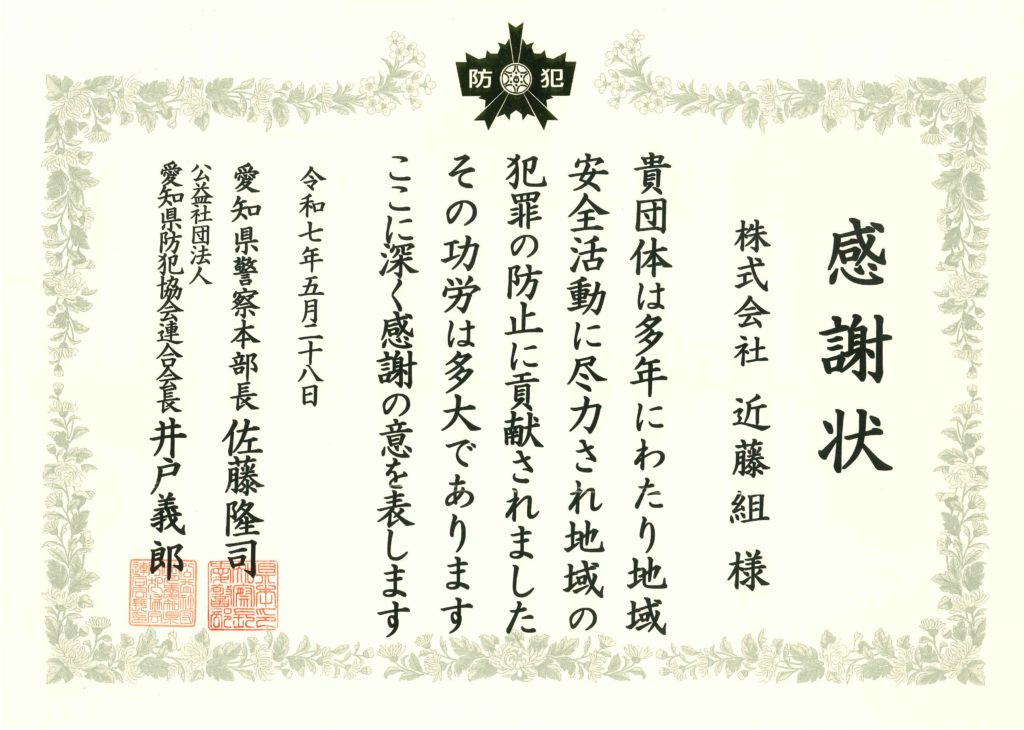 防犯
感謝状
株式会社 近藤組 様
貴団体は多年にわたり地域
安全活動に尽力され地域の
犯罪の防止に貢献されました
その功労は多大であります
ここに深く感謝の意を表します
令和七年五月二十八日
愛知県警察本部長 佐藤隆司
公益社団法人
愛知県防犯協会連合会長 井戸義郎